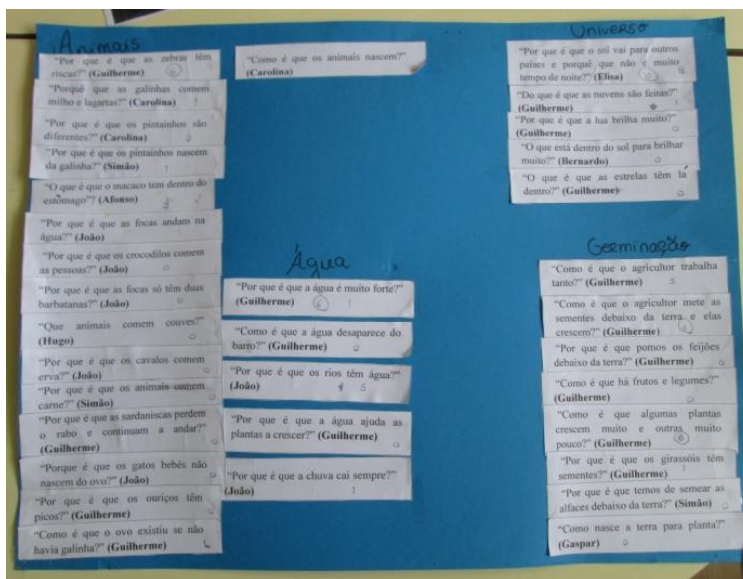 Animais
"Por que é que as zebras têm
riscas?" (Guilherme)
"Porquê que as galinhas comem
milho e lagartas?" (Carolina)
"Por que é que os pintainhos são
diferentes?" (Carolina)
"Por que é que os pintainhos nascem
da galinha?" (Simão)
"O que é que o macaco tem dentro do
estômago"? (Afonso)
"Por que é que as focas andam na
água?" (João)
"Por que é que os crocodilos comem
as pessoas?" (João)
"Por que é que as focas só têm duas
barbatanas?" (João)
"Que animais comem couves?"
(Hugo)
"Por que é que os cavalos comem
erva?" (João)
"Por que é que os animais comem
carne?" (Simão)
"Por que é que as sardaniscas perdem
o rabo e continuam a andar?"
(Guilherme)
"Porque é que os gatos bebés não
nascem do ovo?" (João)
"Por que é que os ouriços têm
picos?" (Guilherme)
"Como é que o ovo existiu se não
havia galinha?" (Guilherme)
"Como é que os animais nascem?"
(Carolina)
Água
"Por que é que a água é muito forte?"
(Guilherme)
"Como é que a água desaparece do
barro?" (Guilherme)
"Por que é que os rios têm água?"
(João)
"Por que é que a água ajuda as
plantas a crescer?" (Guilherme)
"Por que é que a chuva cai sempre?"
(João)
Universo
"Por que é que o sol vai para outros
países e porquê que não é muito
tempo de noite?" (Elisa)
"Do que é que as nuvens são feitas?"
(Guilherme)
"Por que é que a lua brilha muito?"
(Guilherme)
"O que está dentro do sol para brilhar
muito?" (Bernardo)
"O que é que as estrelas têm lá
dentro?" (Guilherme)
Germinação
"Como é que o agricultor trabalha
tanto?" (Guilherme)
"Como é que o agricultor mete as
sementes debaixo da terra e elas
crescem?" (Guilherme)
"Por que é que pomos os feijões
debaixo da terra?" (Guilherme)
"Como é que há frutos e legumes?"
(Guilherme)
"Como é que algumas plantas
crescem muito e outras muito
pouco?" (Guilherme)
"Por que é que os girassóis têm
sementes?" (Guilherme)
"Por que é que temos de semear as
alfaces debaixo da terra?" (Simão)
"Como nasce a terra para planta?"
(Gaspar)